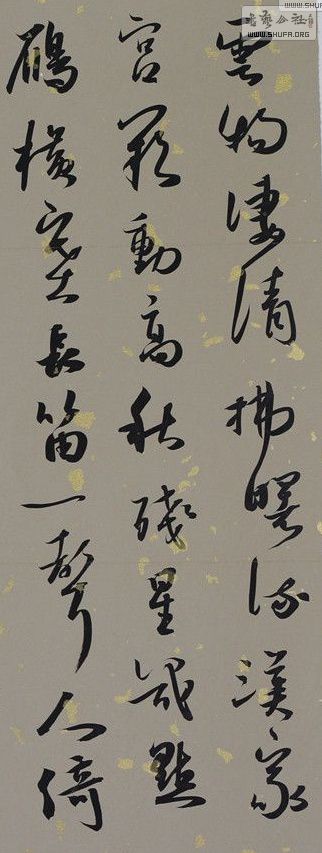 雲物淒清拂曙流漢家
宮闕動高秋殘星幾點
鴈橫塞長笛一聲人倚
書藝公社
WWW.SHUFA.ORG